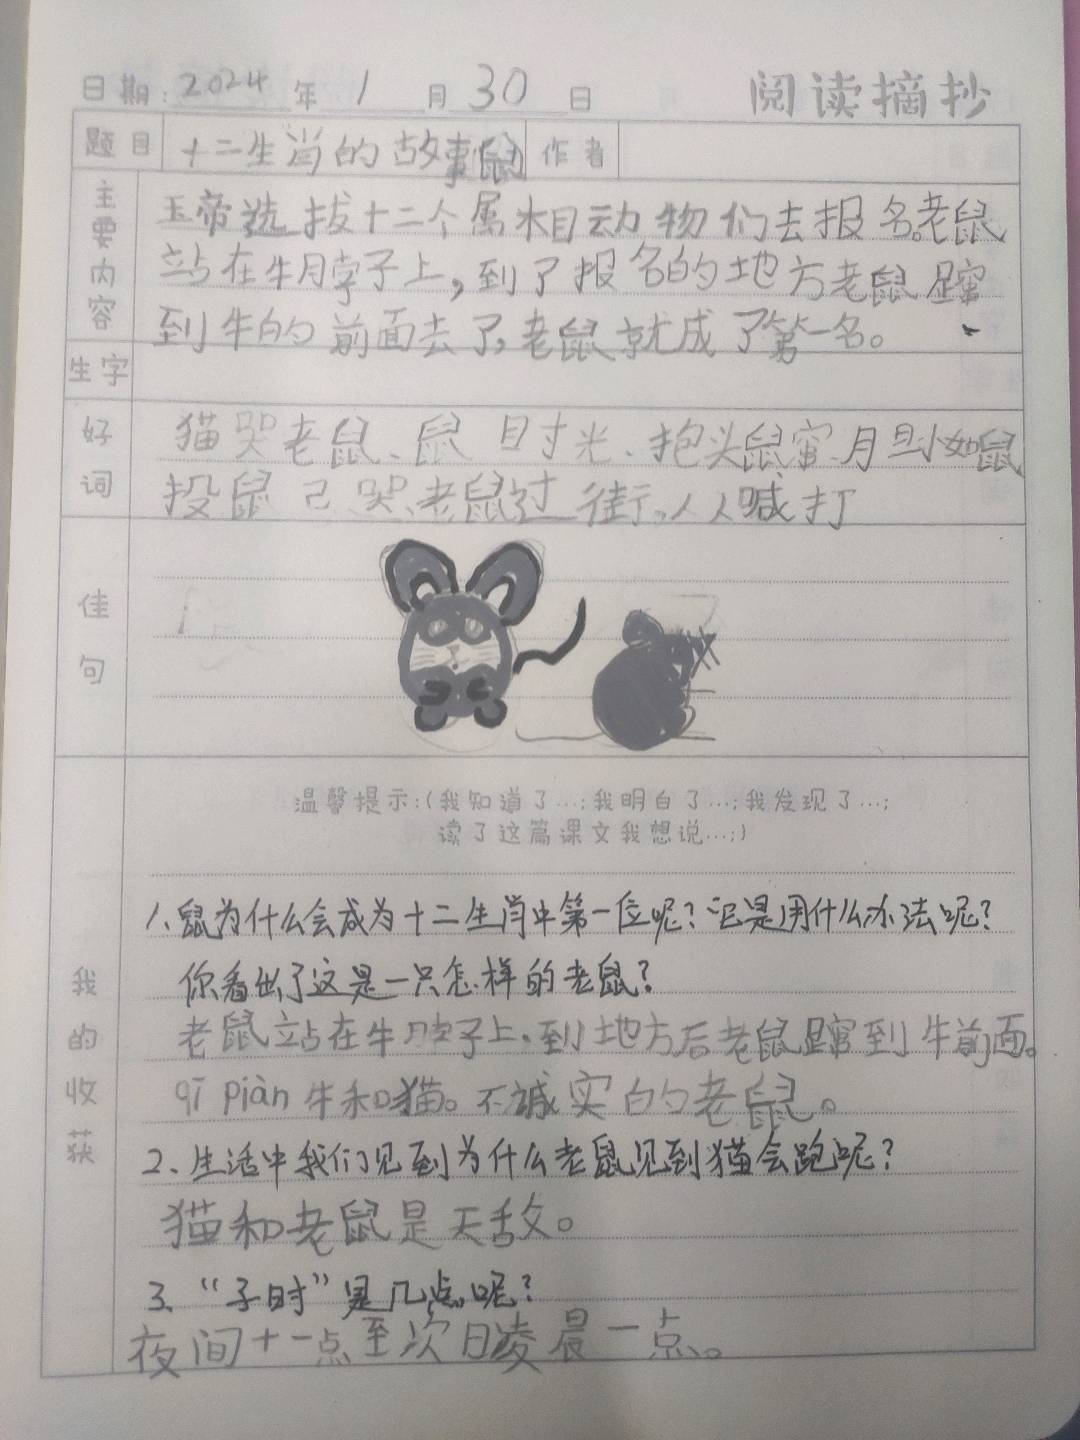 日期:2024年1月30日 阅读摘抄
题目 十二生肖的故事(鼠) 作者
主要内容
玉帝选拔十二个属相动物们去报名。老鼠
站在牛脖子上,到了报名的地方老鼠蹿
到牛的前面去了,老鼠就成了第一名。
生字
好词
猫哭老鼠、鼠目寸光、抱头鼠窜、胆小如鼠
投鼠忌器、老鼠过街,人人喊打
佳句
温馨提示:(我知道了…;我明白了…;我发现了…;
读了这篇课文我想说…;)
我的收获
1、鼠为什么会成为十二生肖中第一位呢?它是用什么办法呢?
你看出了这是一只怎样的老鼠?
老鼠站在牛脖子上,到地方后老鼠蹿到牛前面。
qī piàn 牛和猫。不诚实的老鼠。
2、生活中我们见到为什么老鼠见到猫会跑呢?
猫和老鼠是天敌。
3、“子时”是几点呢?
夜间十一点至次日凌晨一点。